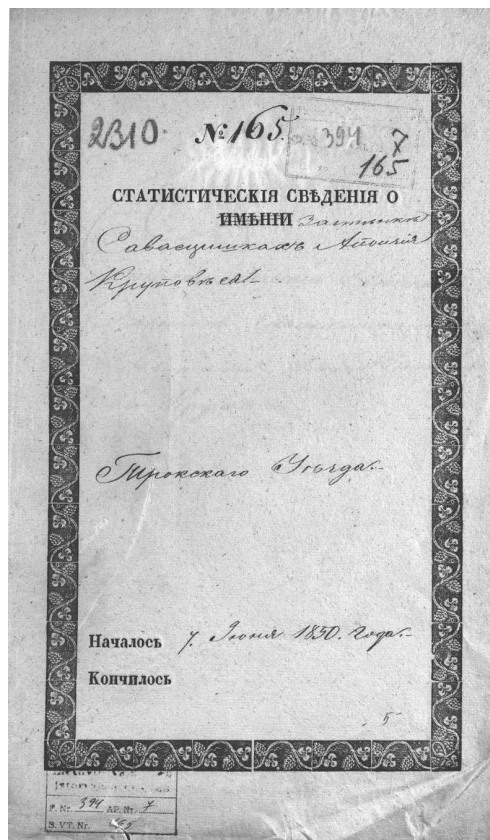 2310. № 165.
394 7
165
СТАТИСТИЧЕСКІЯ СВѢДЕНІЯ О
ИМѢНІИ застѣнкѣ
Круповѣса
Трокскаго Уѣзда.
Началось 7. Іюня 1850. года.
Кончилось
5
F. Nr. 394 AP. Nr. 7
S. VT. Nr. 165